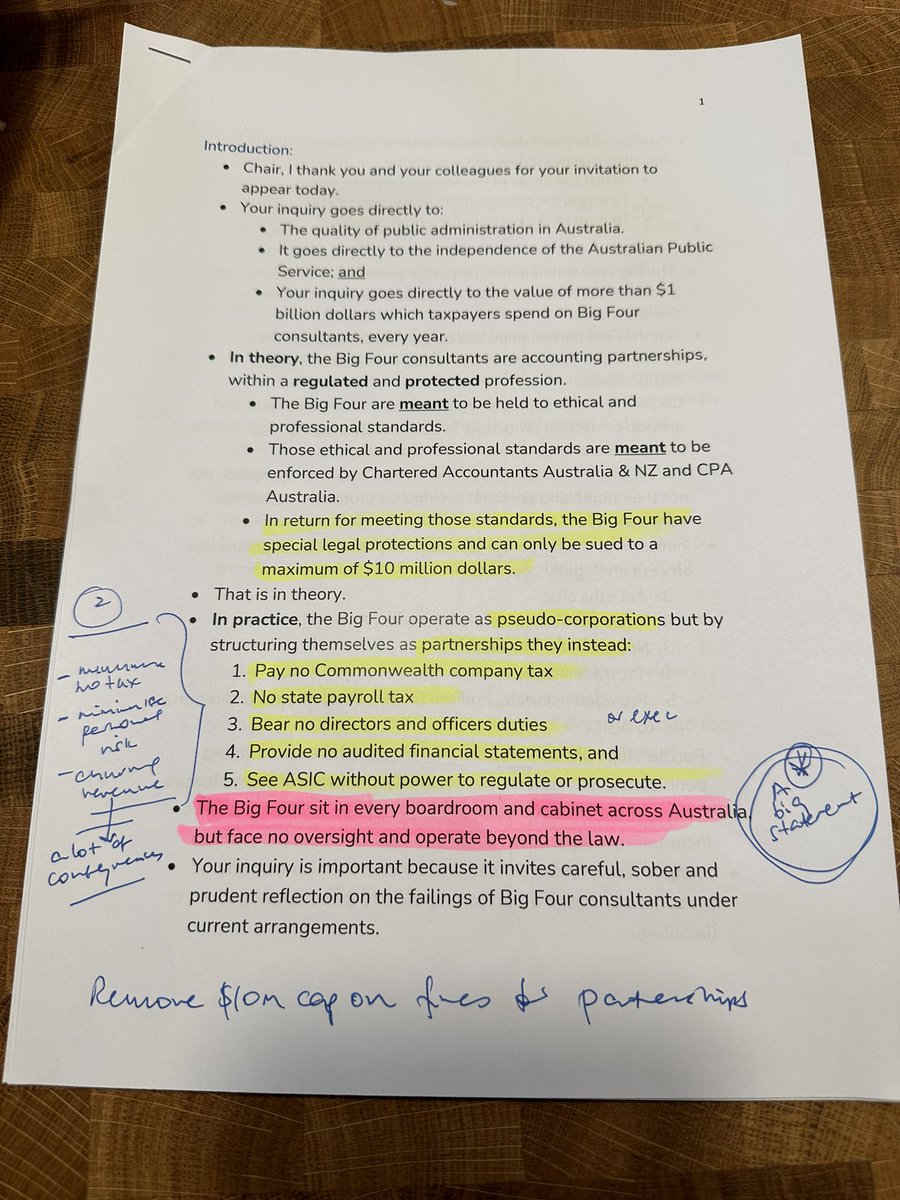 1
Introduction:
• Chair, I thank you and your colleagues for your invitation to
appear today.
• Your inquiry goes directly to:
• The quality of public administration in Australia.
• It goes directly to the independence of the Australian Public
Service; and
• Your inquiry goes directly to the value of more than $1
billion dollars which taxpayers spend on Big Four
consultants, every year.
• In theory, the Big Four consultants are accounting partnerships,
within a regulated and protected profession.
• The Big Four are meant to be held to ethical and
professional standards.
• Those ethical and professional standards are meant to be
enforced by Chartered Accountants Australia & NZ and CPA
Australia.
• In return for meeting those standards, the Big Four have
special legal protections and can only be sued to a
maximum of $10 million dollars.
• That is in theory.
• In practice, the Big Four operate as pseudo-corporations but by
structuring themselves as partnerships they instead:
1. Pay no Commonwealth company tax
2. No state payroll tax
3. Bear no directors and officers duties
or exec
4. Provide no audited financial statements, and
5. See ASIC without power to regulate or prosecute.
• The Big Four sit in every boardroom and cabinet across Australia,
but face no oversight and operate beyond the law.
• Your inquiry is important because it invites careful, sober and
prudent reflection on the failings of Big Four consultants under
current arrangements.
2
-
no tax
- minimise
personal
risk
-
revenue
a lot of
consequences
A
big
statement
Remove $10m cap on fines for partnerships